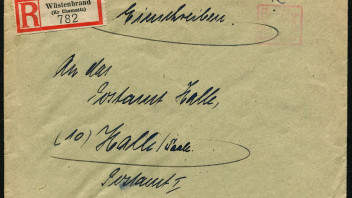 R
Wüstenbrand
(Kr Chemnitz)
782
Einschreiben.
An das
Postamt Halle,
(10) Halle/Saale.
Postamt I